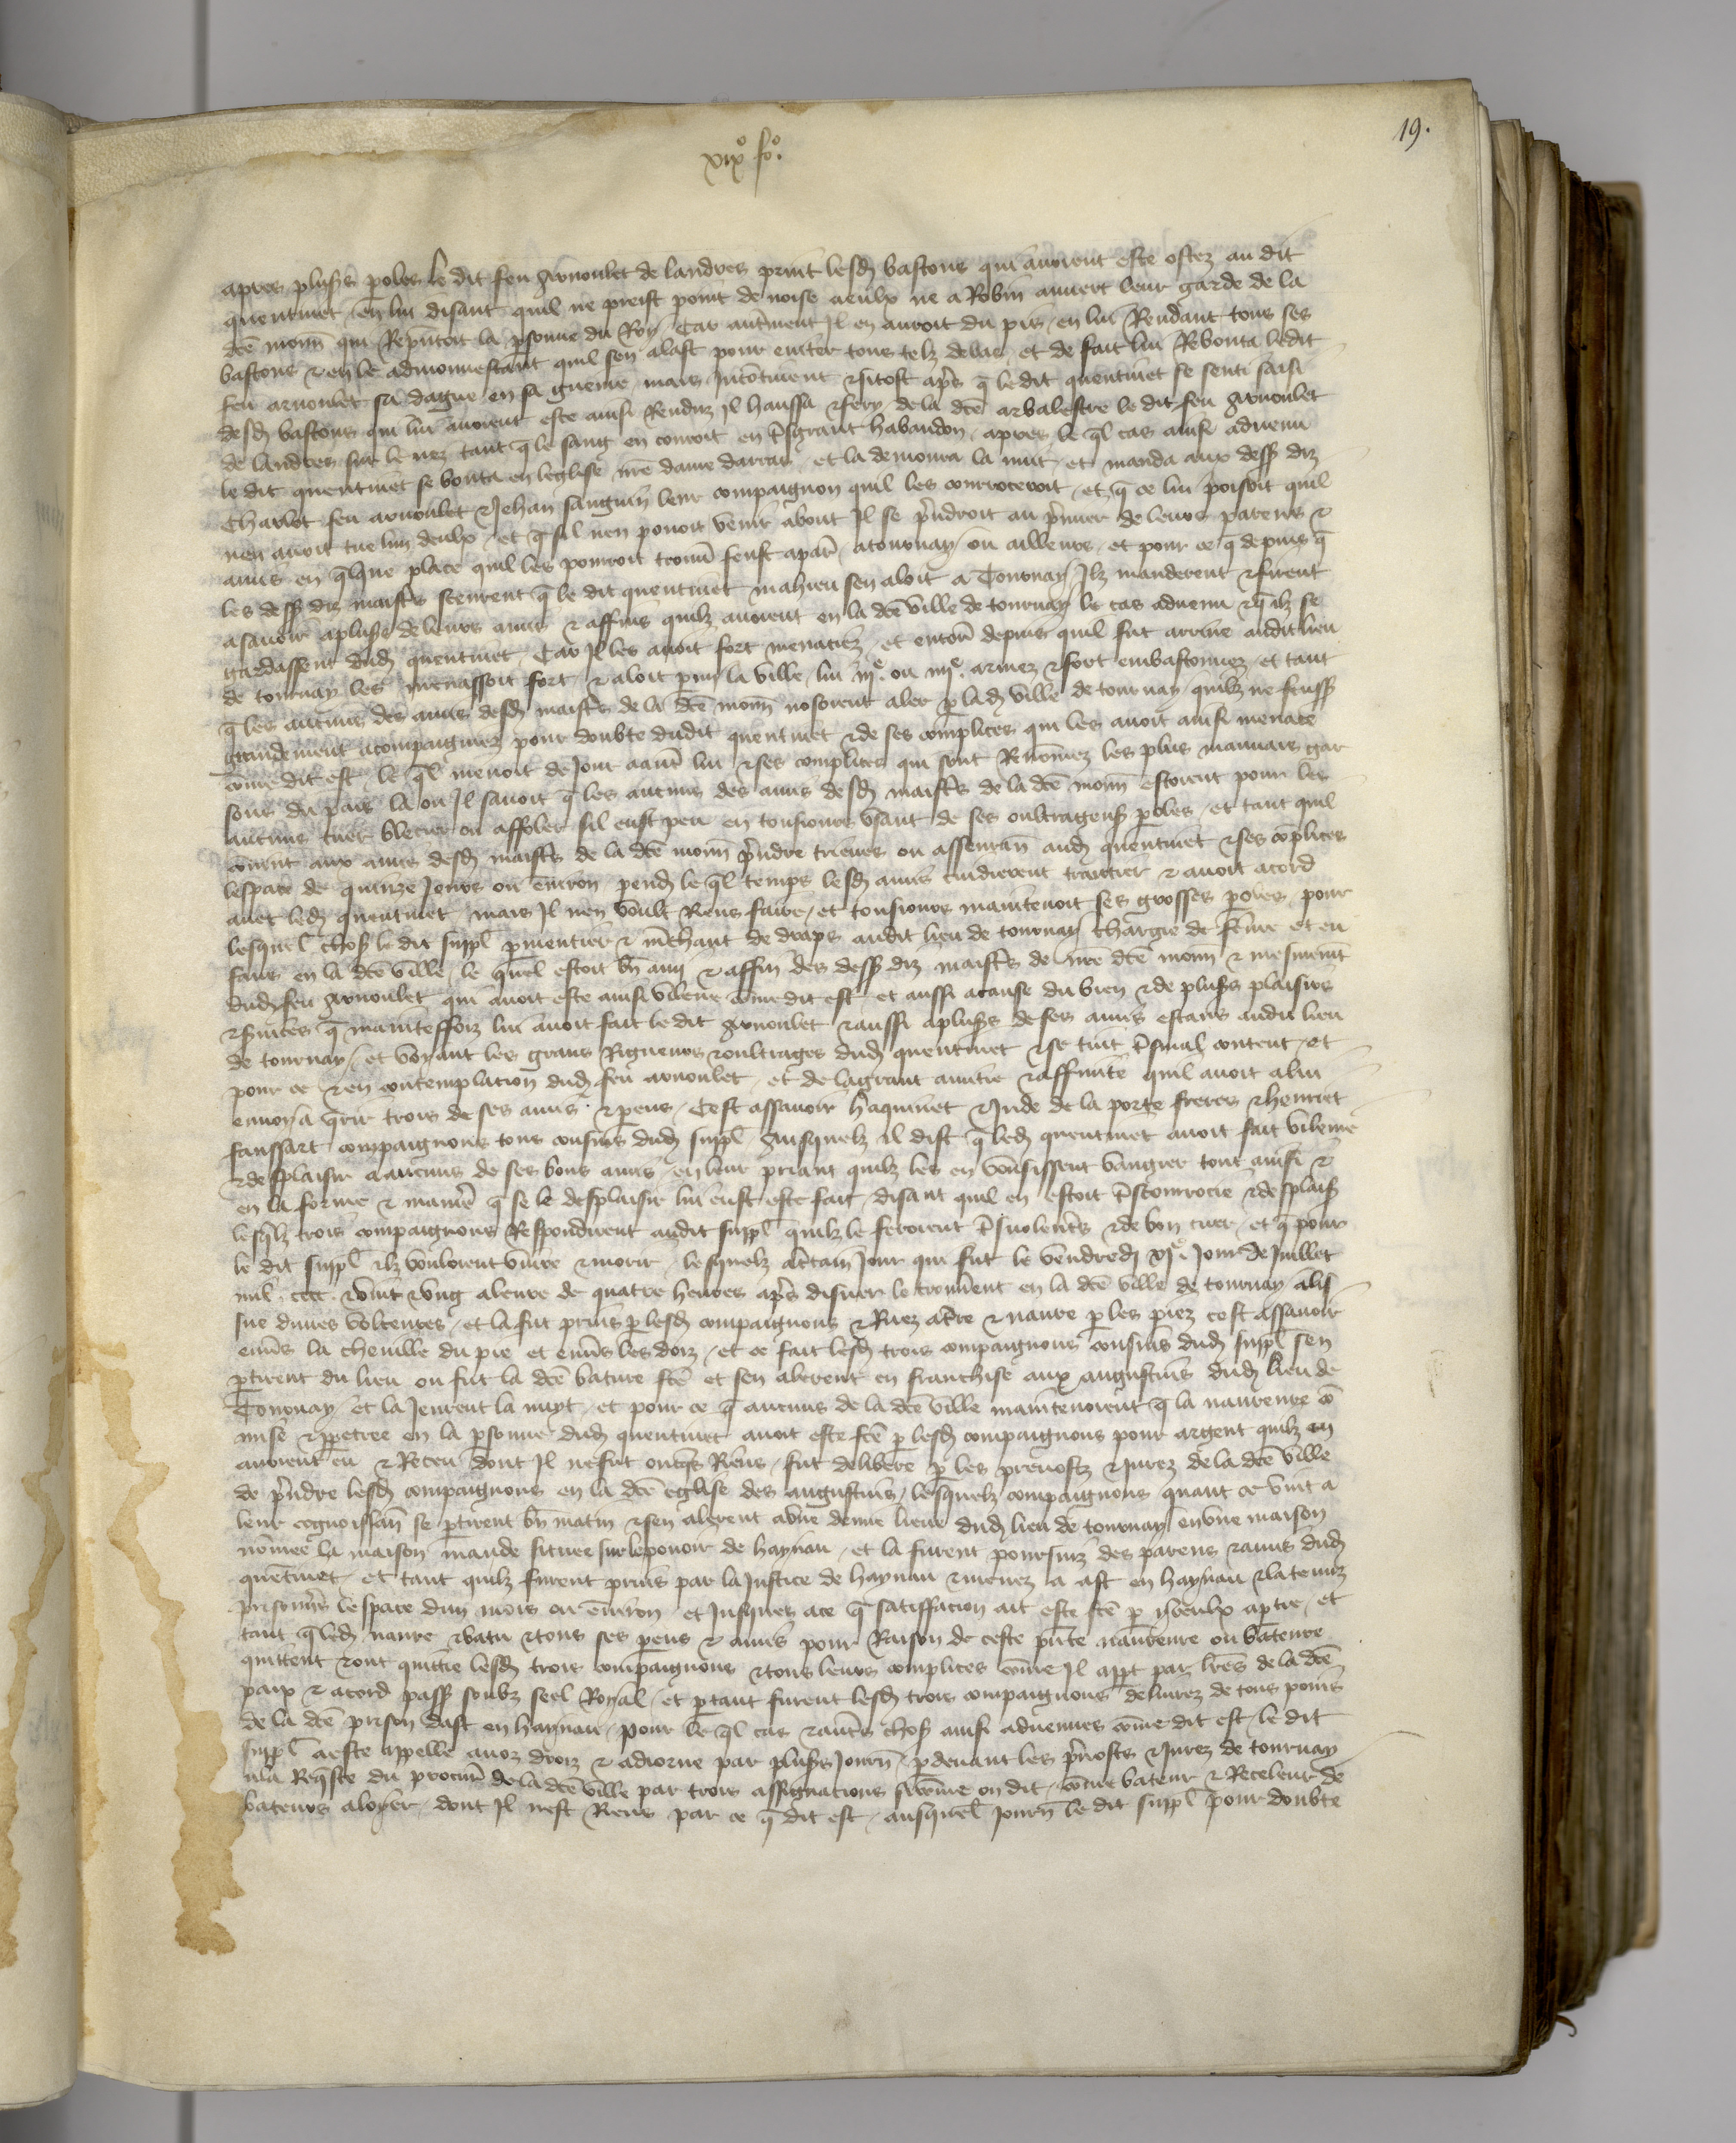 19.
xixo fo.
apres plus̃s p̃oles le dit feu Arnoulet de landres print lesd̃ bastons qui auoient este ostez au dit
quentinet en lui disant quil ne preist point de noise a eulx ne a Robin annert leur garde de la
dc̃e monn̄ qui rep̃ntoit la p̃sonne du Roy Car aut̃ment Il en auroit du pis en lui Rendant tous ses
bastons ⁊ en le admonnestant quil sen alast pour euiter tous telz debas et de fait lui Rebouta ledit
feu arnoulet sa dague en sa gueine mais Incõtinent ⁊ sitost ap̃s q̃ le dit quentinet se senti saisi
desd̃ bastons qui lui auoient este ainsi Renduz Il haussa ⁊ fery de la dc̃e arbalestre le dit feu Arnoulet
de landres sur le nez tant q̃ le sang en couroit en t̃sgrant habandon apres le q̃l cas ainsi aduenu
le dit quentinet se bouta en leglise nr̃e dame darras et la demoura la nuit et manda aux dess̃ diz
Charlot feu arnoulet ⁊ Jehan sanguin leur compaignon quil les courroceroit et q̃ ce lui poisoit quil
nen auoit tue lun deulx et q̃ sil nen pouoit venir about Il se p̃ndroit au p̃mier de leurs parens ⁊
amis en q̃lque place quil les pourroit trouũ feust apar̃ a tournay ou ailleurs et pour ce q̃ depuis q̃
les dess̃ diz maist̃s sceurent q̃ le dit quentinet mahieu sen aloit a Tournay Ilz manderent ⁊ firent
asauoir aplus̃s de leurs amis ⁊ affins quilz auoient en la dc̃e ville de tournay le cas aduenu ⁊ q̃lz se
gardassent dud̃ quentinet Car Il les auoit fort menaciez et encor̃ depuis quil fut arriue audit lieu
de tournay les menassoit fort ⁊ aloit p̃my la ville lui iije ou iiije armez ⁊ fort embastonnez et tant
q̃ les aucuns des amis desd̃ maist̃s de la dc̃e monn̄ nosoient aler p̃ lad̃ ville de tournay quilz ne feuss̃
grandement acompaigniez pour doubte dudit quentinet ⁊ de ses complices qui les auoit ainsi menace
com̃e dit est le q̃l menoit de Jour auant lui ⁊ ses complices qui sont Renom̃ez les plus mauuais gar
sons du pais la ou Il sauoit q̃ les aucuns des amis desd̃ maist̃s de la dc̃e monn̄ estoient pour les
aucuns tuer blecier ou affoler sil eust peu en tousiours vsant de ses oultrageus̃ p̃oles et tant quil
conuint aux amis desd̃ maist̃s de la dc̃e monn̄ p̃ndre trieues ou asseuran̄ aud̃ quentinet ⁊ ses cõplices
lespace de quinze Jours ou enuiron pend̃ le q̃l temps lesd̃ amis cuidierent traictier ⁊ auoir acord
auec led̃ quentinet mais Il nen voult Riens faire et tousiours maintenoit ses grosses p̃oles pour
lesquel̃ chos̃ le dit suppl̃ p̃mentier ⁊ m̃chant de draps audit lieu de tournay chargie de fẽme et en
fans en la dc̃e ville le quel estoit bn̄ amy ⁊ affin des dess̃ diz maist̃s de nr̃e dc̃e monn̄ ⁊ mesmem̃t
dud̃ feu Arnoulet qui auoit este ainsi vilene com̃e dit est et aussi a cause du bien ⁊ de plus̃s plaisirs
⁊ s̃uices q̃ maintesfoiz lui auoit fait le dit Arnoulet ⁊ aussi aplus̃s de ses amis estans audit lieu
de tournay et voyant les grans Rigueurs ⁊ oultrages dud̃ quentinet ⁊ se tint t̃smal content et
pour ce ⁊ en contemplacion dud̃ feu arnoulet et de la grant amitie ⁊ affinite quil auoit a lui
enuoya q̃rir trois de ses amis ⁊ p̃ens Cest assauoir haquinet ⁊ Jude de la porte freres ⁊ henriet
faussart compaignons tous cousins dud̃ suppl̃ Ausquelz il dist q̃ led̃ quentinet auoit fait vilenie
⁊ desplaisir a aucuns de ses bons amis en leur priant quilz les en voulsissent vangier tout ainsi ⁊
en la forme ⁊ manier̃ q̃ se le desplaisir lui eust este fait disant quil en estoit t̃scourrocie ⁊ desplais̃
lesq̃lz trois compaignons Respondirent audit suppl̃ quilz le feroient t̃suolent̃s ⁊ de bon cuer et q̃ pour
le dit suppl̃ ilz vouloient viure ⁊ morir lesquelz a c̃tain Jour qui fut le vendred̃ xje Jour de Juillet
mil cccc ⁊ vint ⁊ vng aleure de quatre heures ap̃s disner le trouuerent en la dc̃e ville de tournay alis
sue dunes voltentes et la fut prins p̃ lesd̃ compaignons ⁊ Ruez at̃re ⁊ naure p̃ les piez cest assauoir
enũs la cheuille du pie et enũs les doiz et ce fait lesd̃ trois compaignons cousins dud̃ suppl̃ sen
p̃tirent du lieu ou fut la dc̃e bature fc̃e et sen alerent en franchise aux augustins dud̃ lieu de
Tournay et la Jeurent la nuyt et pour ce q̃ aucuns de la dc̃e ville maintenoient q̃ la naureure cõ
mise ⁊ p̃petree en la p̃sonne dud̃ quentinet auoit este fc̃e p̃ lesd̃ compaignons pour argent quilz en
auoient eu ⁊ Receu dont Il ne fut onq̃s Riens fut delibere p̃ les preuostz ⁊ Jurez de la dc̃e ville
de p̃ndre lesd̃ compaignons en la dc̃e eglise des augustins lesquelz compaignons quant ce vint a
leur cognoissan̄ se p̃tirent bn̄ matin ⁊ sen alerent a vne demie lieue dud̃ lieu de tournay en vne maison
nom̃ee la maison maude situee sur le pouoir de haynau et la furent poursuiz des parens ⁊ amis dud̃
quentinet et tant quilz furent prins par la Justice de haynau ⁊ menez a ast en haynau ⁊ la tenuz
prisonñs lespace dun mois ou enuiron et Jusques ace q̃ satisfacion ait este fc̃e p̃ yceulx a p̃tie et
tant q̃ led̃ naure ⁊ batu ⁊ tous ses p̃ens ⁊ amis pour Raison de ceste p̃nte naureure ou bateure
quittent ⁊ ont quittie lesd̃ trois compaignons ⁊ tous leurs complices com̃e Il app̃t par lr̃es de la dc̃e
paix ⁊ acord pass̃ soubz seel Royal et p̃tant furent lesd̃ trois compaignons deliurez de tous poins
de la dc̃e prison dast en haynau pour le q̃l cas ⁊ aut̃s chos̃ ainsi aduenues com̃e dit est le dit
suppl̃ a este appelle a noz droiz ⁊ adiorne par plus̃s Journ̄ p̃deuant les p̃uosts ⁊ Jurez de tournay
a la Req̃ste du procur̃ de la dc̃e ville par trois assignacions sicom̃e on dit com̃e bateur ⁊ Receleur de
bateurs a loyer dont Il nest Riens par ce q̃ dit est ausquel̃ Journ̄ le dit suppl̃ pour doubte